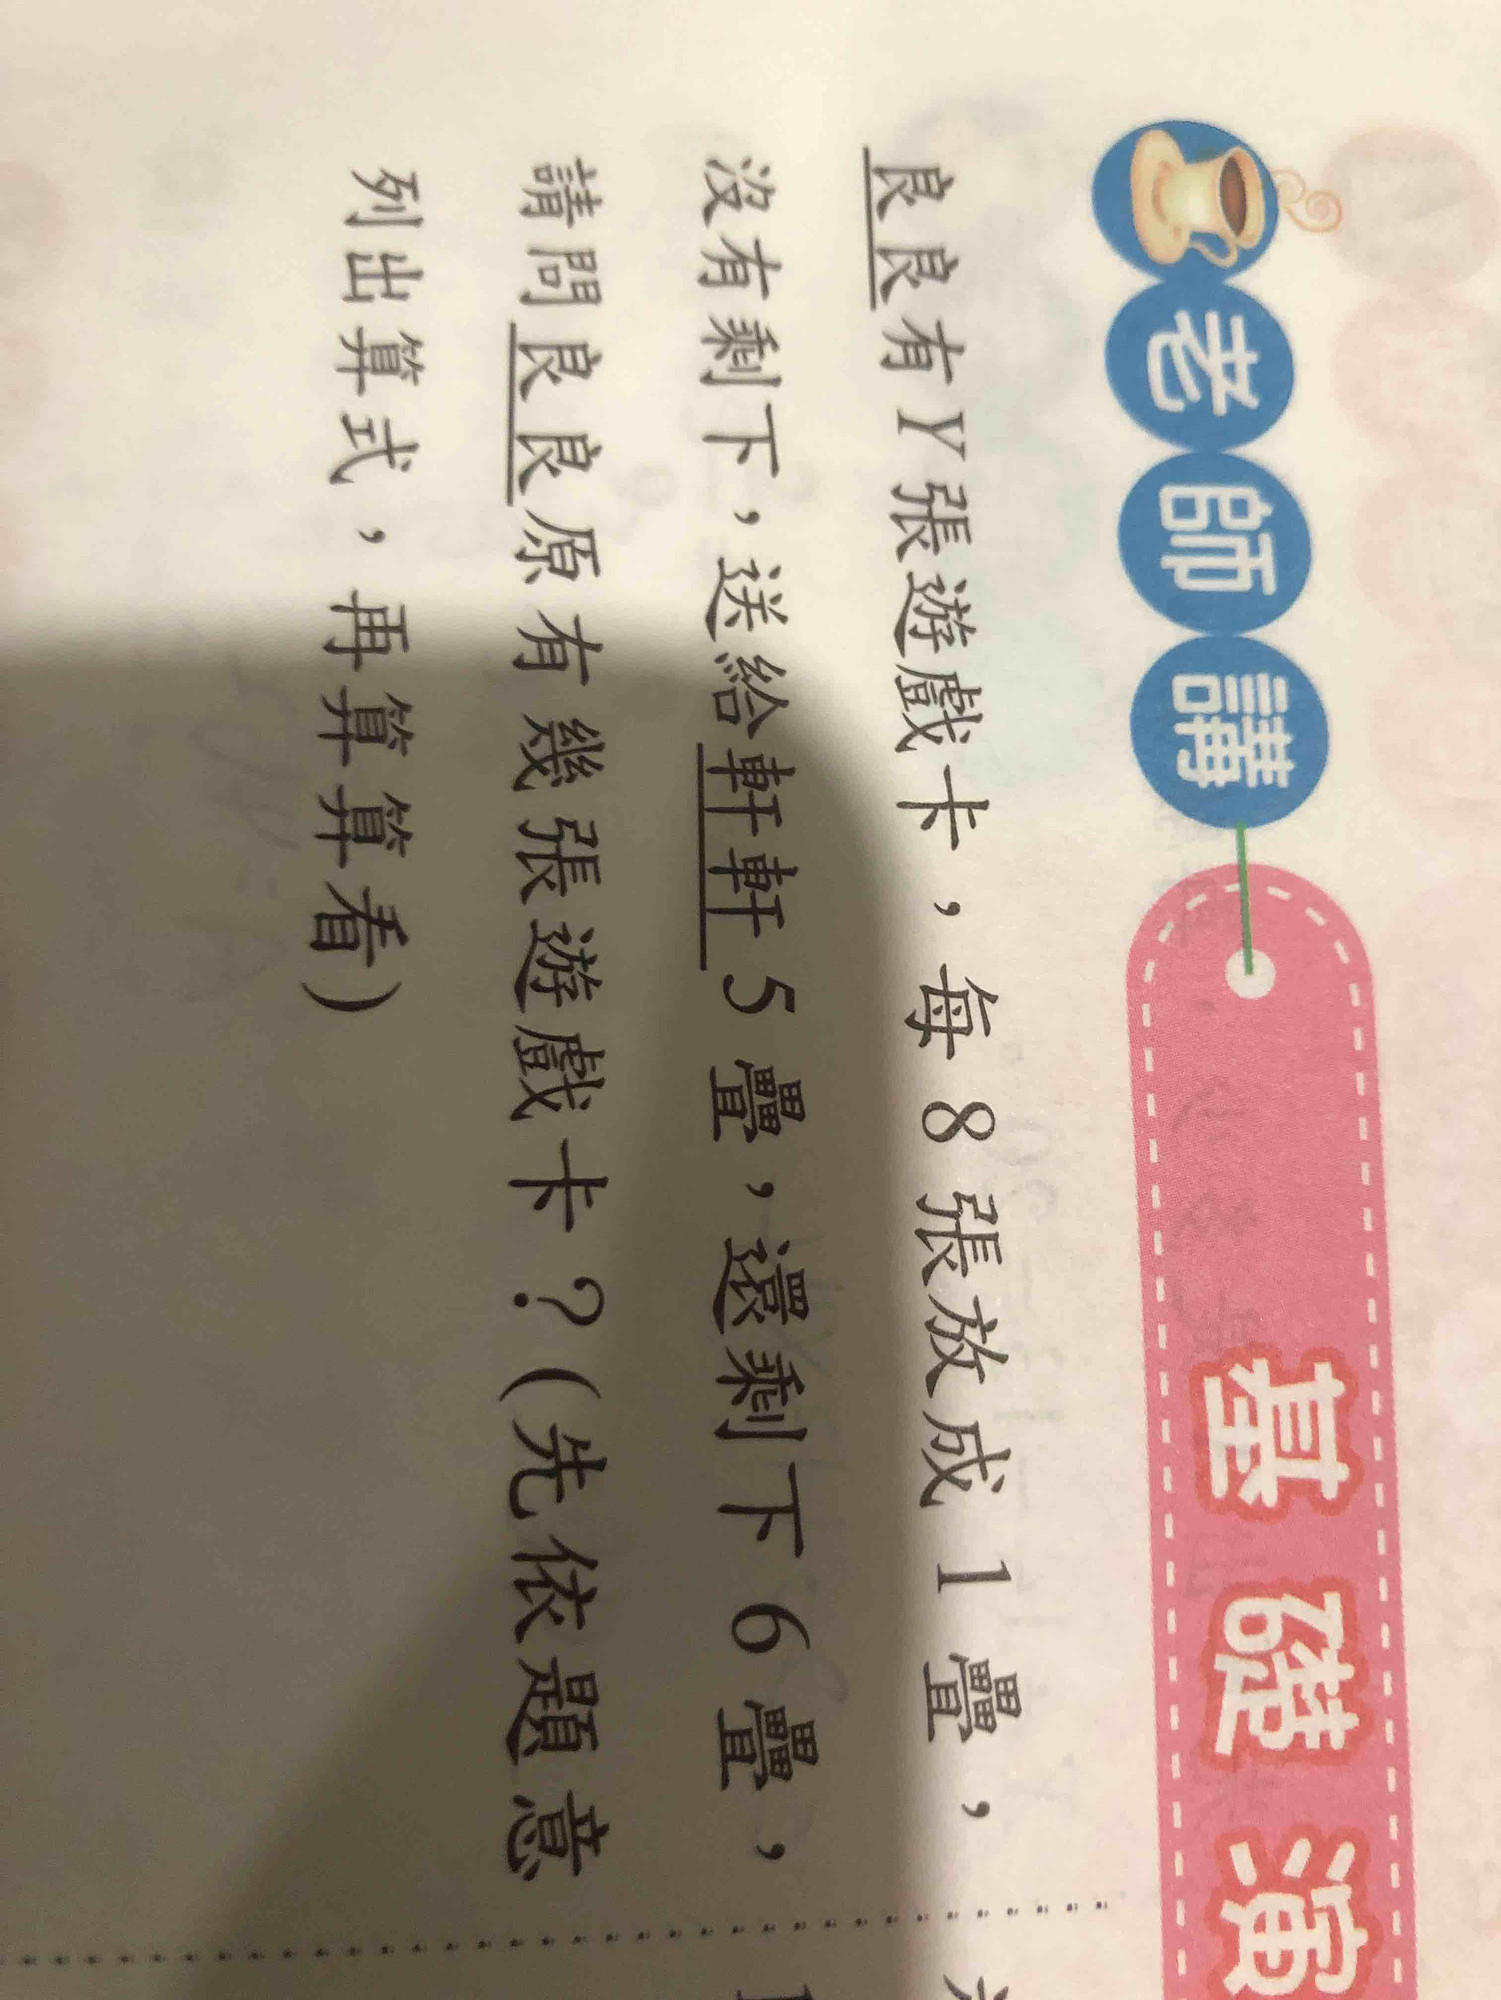 老師講
基礎演
良良有Y張遊戲卡，每8張放成1疊，
沒有剩下，送給軒軒5疊，還剩下6疊，
請問良良原有幾張遊戲卡？(先依題意
列出算式，再算算看)